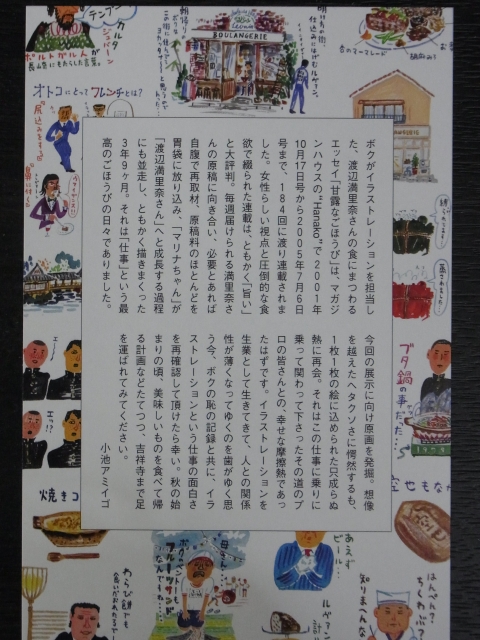 ボクがイラストレーションを担当し
た、渡辺満里奈さんの食にまつわる
エッセイ「甘露なごほうび」は、マガジ
ンハウスの“Hanako”で2001年
10月17日号から2005年7月6日
号まで、184回に渡り連載されま
した。女性らしい視点と圧倒的な食
欲で綴られた連載は、ともかく「旨い」
と大評判。毎週届けられる満里奈さ
んの原稿に向き合い、必要とあれば
自腹で再取材、原稿料のほとんどを
胃袋に放り込み、「マリナちゃん」が
「渡辺満里奈さん」へと成長する過程
にも並走し、ともかく描きまくった
3年9ヶ月。それは「仕事」という最
高のごほうびの日々でありました。
今回の展示に向け原画を発掘。想像
を越えたヘタクソさに愕然するも、
1枚1枚の絵に込められた只成らぬ
熱に再会。それはこの仕事に乗りに
乗って関わって下さったその道のプ
ロの皆さんとの、幸せな摩擦熱であっ
たはずです。イラストレーションを
生業として生きてきて、人との関係
性が薄くなってゆくのを歯がゆく思
う今、ボクの恥の記録と共に、イラ
ストレーションという仕事の面白さ
を再確認して頂けたら幸い。秋の始
まりの頃、美味しいものを食べて帰
る計画などたてつつ、吉祥寺まで足
を運ばれてみてください。
小池アミイゴ
BOULANGERIE
オトコにとってフレンチとは?
ブタ鍋の事だった…
焼きコ
フルーツサンド
わらび餅でも
知りまへんな
はんぺん?